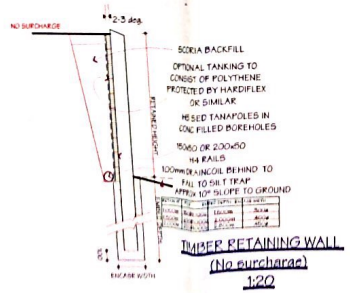 NO SURCHARGE
2-3 deg.
SCORIA BACKFILL
OPTIONAL TANKING TO
CONSIST OF POLYTHENE
PROTECTED BY HARDIFLEX
OR SIMILAR
H5 SED TANAPOLES IN
CONC FILLED BOREHOLES
150x50 OR 200x50
H4 RAILS
100mm DRAINCOIL BEHIND TO
FALL TO SILT TRAP
APPROX 10° SLOPE TO GROUND
RETAINED HEIGHT
100
ENCASE WIDTH
TIMBER RETAINING WALL
(No surcharge)
1:20